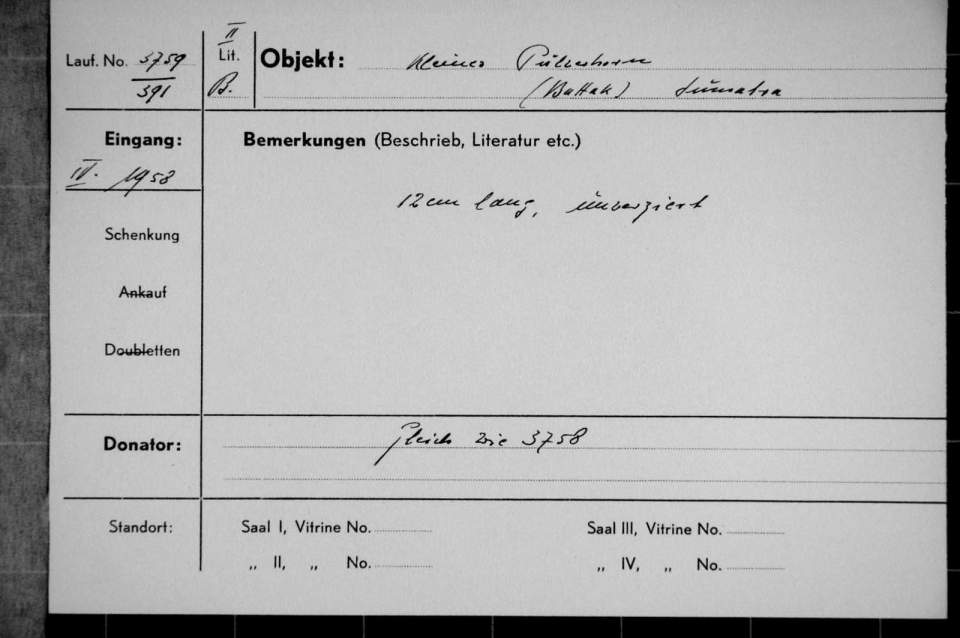 Lauf. No. 3759
391
II
Lit.
B.
Objekt: kleines Pulverhorn
(Battak) Sumatra
Eingang:
IV. 1958
Schenkung
Ankauf
Doubletten
Bemerkungen (Beschrieb, Literatur etc.)
12 cm lang, unverziert
Donator: Gleich wie 3758
Standort:
Saal I, Vitrine No.
„ II, „ No.
Saal III, Vitrine No.
„ IV, „ No.